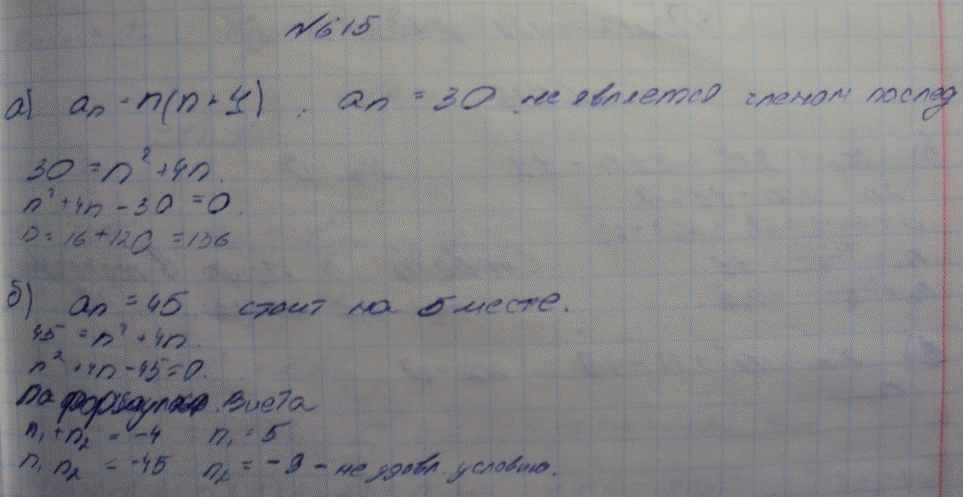 №615
а) aₙ = n(n+4) ; aₙ = 30 не является членом послед
30 = n² + 4n.
n² + 4n - 30 = 0.
D = 16 + 120 = 136
б) aₙ = 45 стоит на 5 месте.
45 = n² + 4n.
n² + 4n - 45 = 0.
По формулам Виета
n₁ + n₂ = -4 n₁ = 5
n₁ n₂ = -45 n₂ = -9 - не удовл. условию.